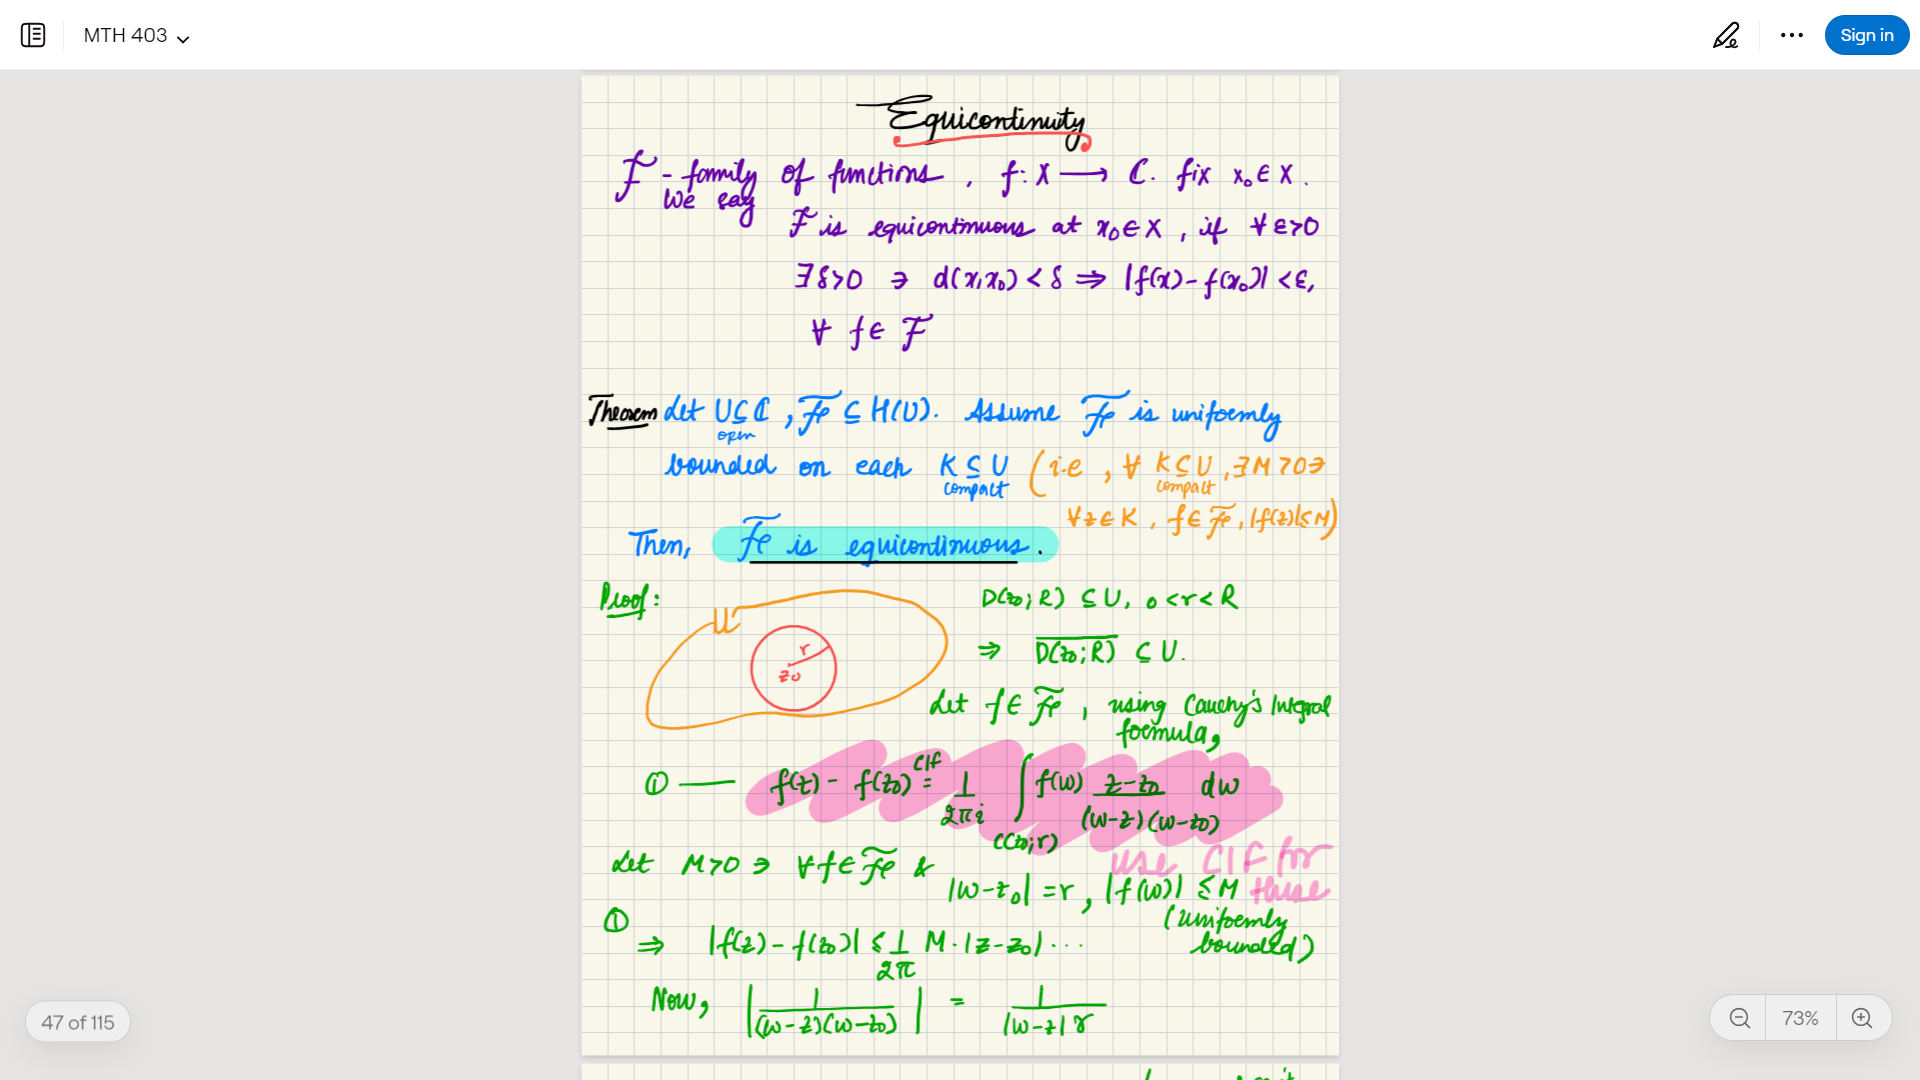 MTH 403
Sign in
Equicontinuity
ℱ - family of functions, f: X ⟶ ℂ. fix x₀ ∈ X.
We say
ℱ is equicontinuous at x₀ ∈ X, if ∀ ε>0
∃ δ>0 ∋ d(x, x₀) < δ ⇒ |f(x) - f(x₀)| < ε,
∀ f ∈ ℱ
Theorem Let U ⊆ ℂ, ℱ ⊆ H(U). Assume ℱ is uniformly
open
bounded on each K ⊆ U (i.e, ∀ K ⊆ U, ∃ M > 0 ∋
compact compact
∀ z ∈ K, f ∈ ℱ, |f(z)| ≤ M)
Then, ℱ is equicontinuous.
Proof: D(z₀; R) ⊆ U, 0 < r < R
U
r
z₀
⇒ \overline{D(z₀; R)} ⊆ U.
Let f ∈ ℱ, using Cauchy's Integral
formula,
① — f(z) - f(z₀) \overset{CIF}{=} \frac{1}{2πi} ∫_{C(z₀; r)} f(w) \frac{z-z₀}{(w-z)(w-z₀)} dw
use CIF for
these
Let M>0 ∋ ∀ f ∈ ℱ &
|w-z₀| = r, |f(w)| ≤ M
(uniformly
bounded)
① ⇒ |f(z) - f(z₀)| ≤ \frac{1}{2π} M · |z-z₀| ···
Now, |\frac{1}{(w-z)(w-z₀)}| = \frac{1}{|w-z| r}
47 of 115
73%